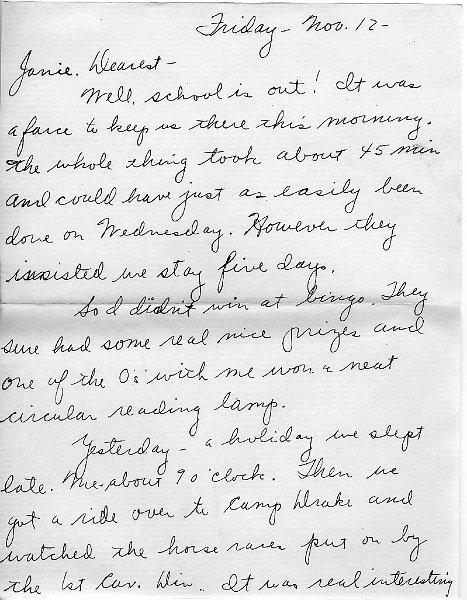 Friday - Nov. 12 -
Janie. Dearest -
Well, school is out! It was
a farce to keep us there this morning.
The whole thing took about 45 min
and could have just as easily been
done on Wednesday. However they
insisted we stay five days.
So I didn't win at bingo. They
sure had some real nice prizes and
one of the O's with me won a neat
circular reading lamp.
Yesterday - a holiday we slept
late. Me - about 9 o'clock. Then we
got a ride over to Camp Drake and
watched the horse races put on by
the 1st Cav. Div. It was real interesting